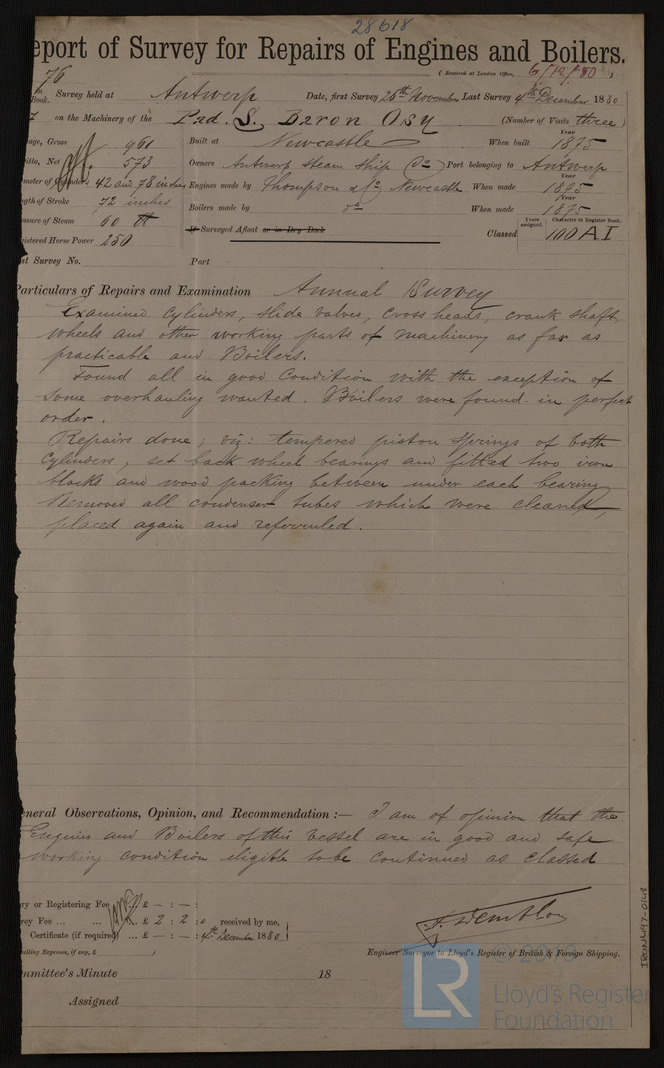 28618
eport of Survey for Repairs of Engines and Boilers.
76
(Received at London Office, 6/12/80)
Book. Survey held at Antwerp Date, first Survey 26th November Last Survey 4th December 1880
on the Machinery of the Pad. S. Baron Osy (Number of Visits three)
age, Gross 961 Built at Newcastle When built Year 1875
itto, Net 573 Owners Antwerp Steam Ship Co Port belonging to Antwerp
meter of Cylinders 42 and 78 inches Engines made by Thompson & Co Newcastle When made Year 1875
gth of Stroke 72 inches Boilers made by do When made Year 1875
ssure of Steam 60 lb If Surveyed Afloat or in Dry Dock
istered Horse Power 250 Classed Years assigned. Character in Register Book. 100 A I
st Survey No. Port
Particulars of Repairs and Examination Annual Survey
Examined Cylinders, slide valves, Cross heads, crank shaft
wheels and other working parts of machinery as far as
practicable and Boilers.
Found all in good Condition with the exception of
some overhauling wanted. Boilers were found in perfect
order.
Repairs done, viz: tempered piston springs of both
Cylinders, set back wheel bearings and fitted two iron
blocks and wood packing between under each bearing
Removed all condenser tubes which were cleaned,
placed again and referruled.
eneral Observations, Opinion, and Recommendation :— I am of opinion that the
Engines and Boilers of this Vessel are in good and safe
working condition eligible to be continued as classed
ry or Registering Fee £ — : — :
vey Fee ... ... £ 2 : 2 : 0 received by me,
Certificate (if required) ... £ — : — : 4th December 1880
velling Expenses, if any, £ )
Engineer Surveyor to Lloyd's Register of British & Foreign Shipping.
mmittee's Minute 18
Assigned
IRON697-0148
© 2019
LR
Lloyd's Register
Foundation